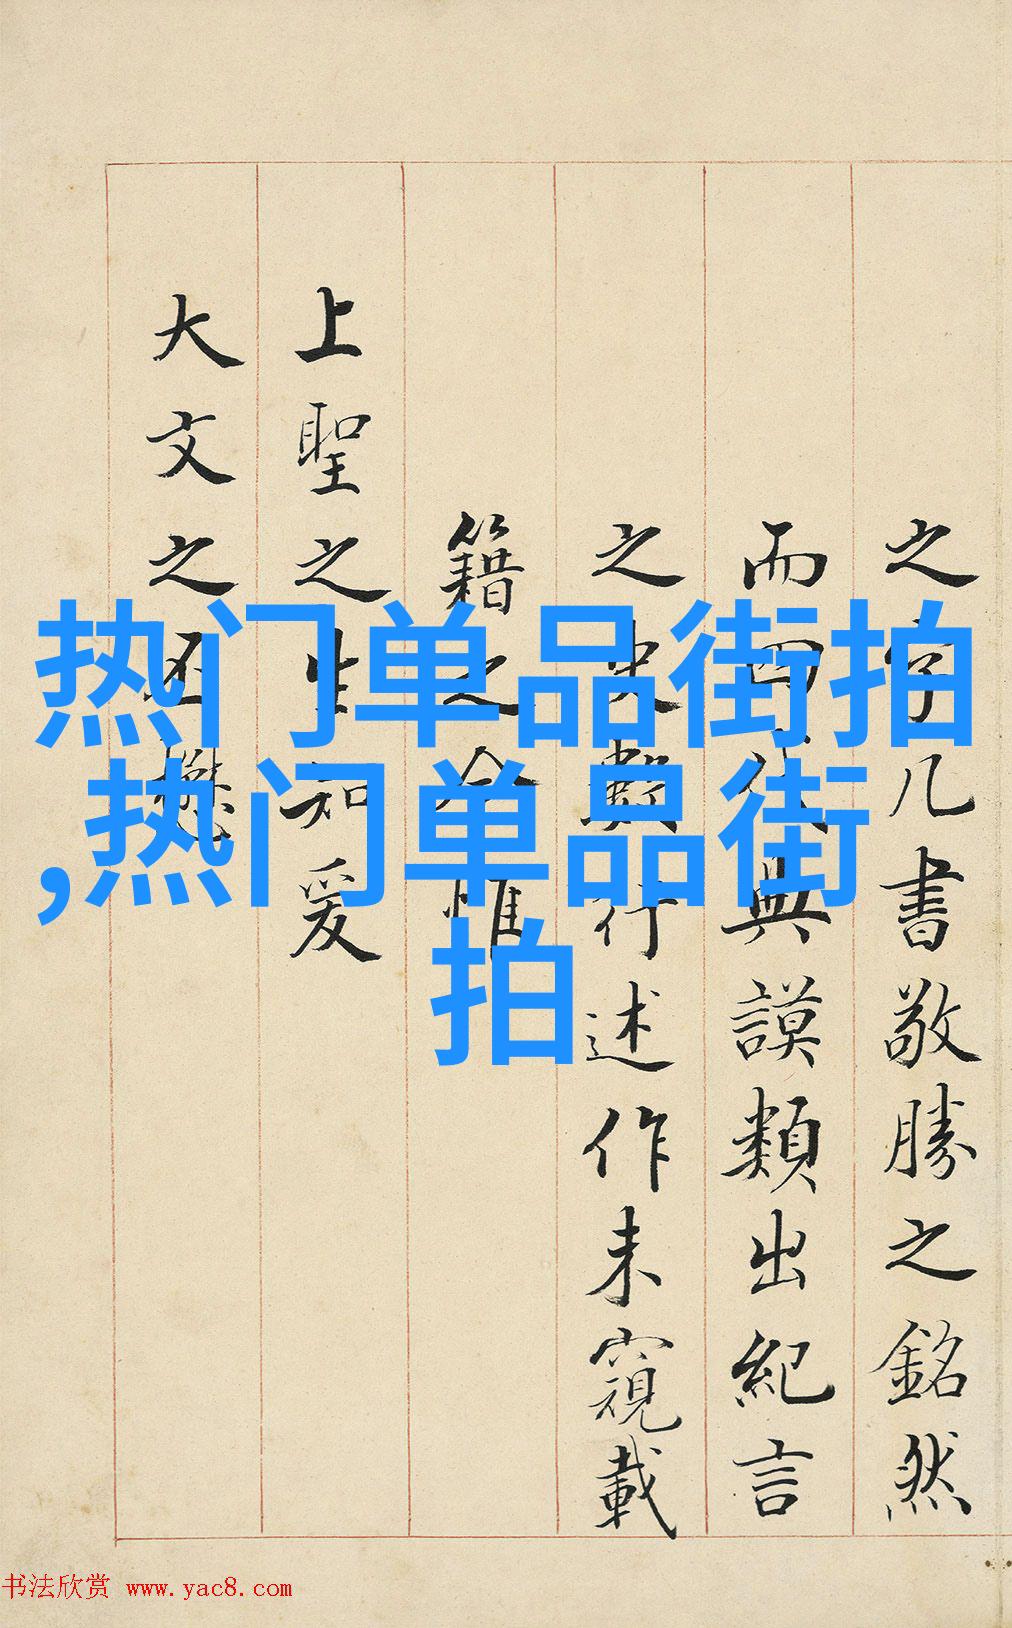 之字几書敬勝之銘然
而四代典謨類出紀言
之史數行述作未窺載
籍之惟
上聖之生知爰
大文之丕懋
热门单品街拍
,热门单品街
拍
书法欣赏 www.yac8.com